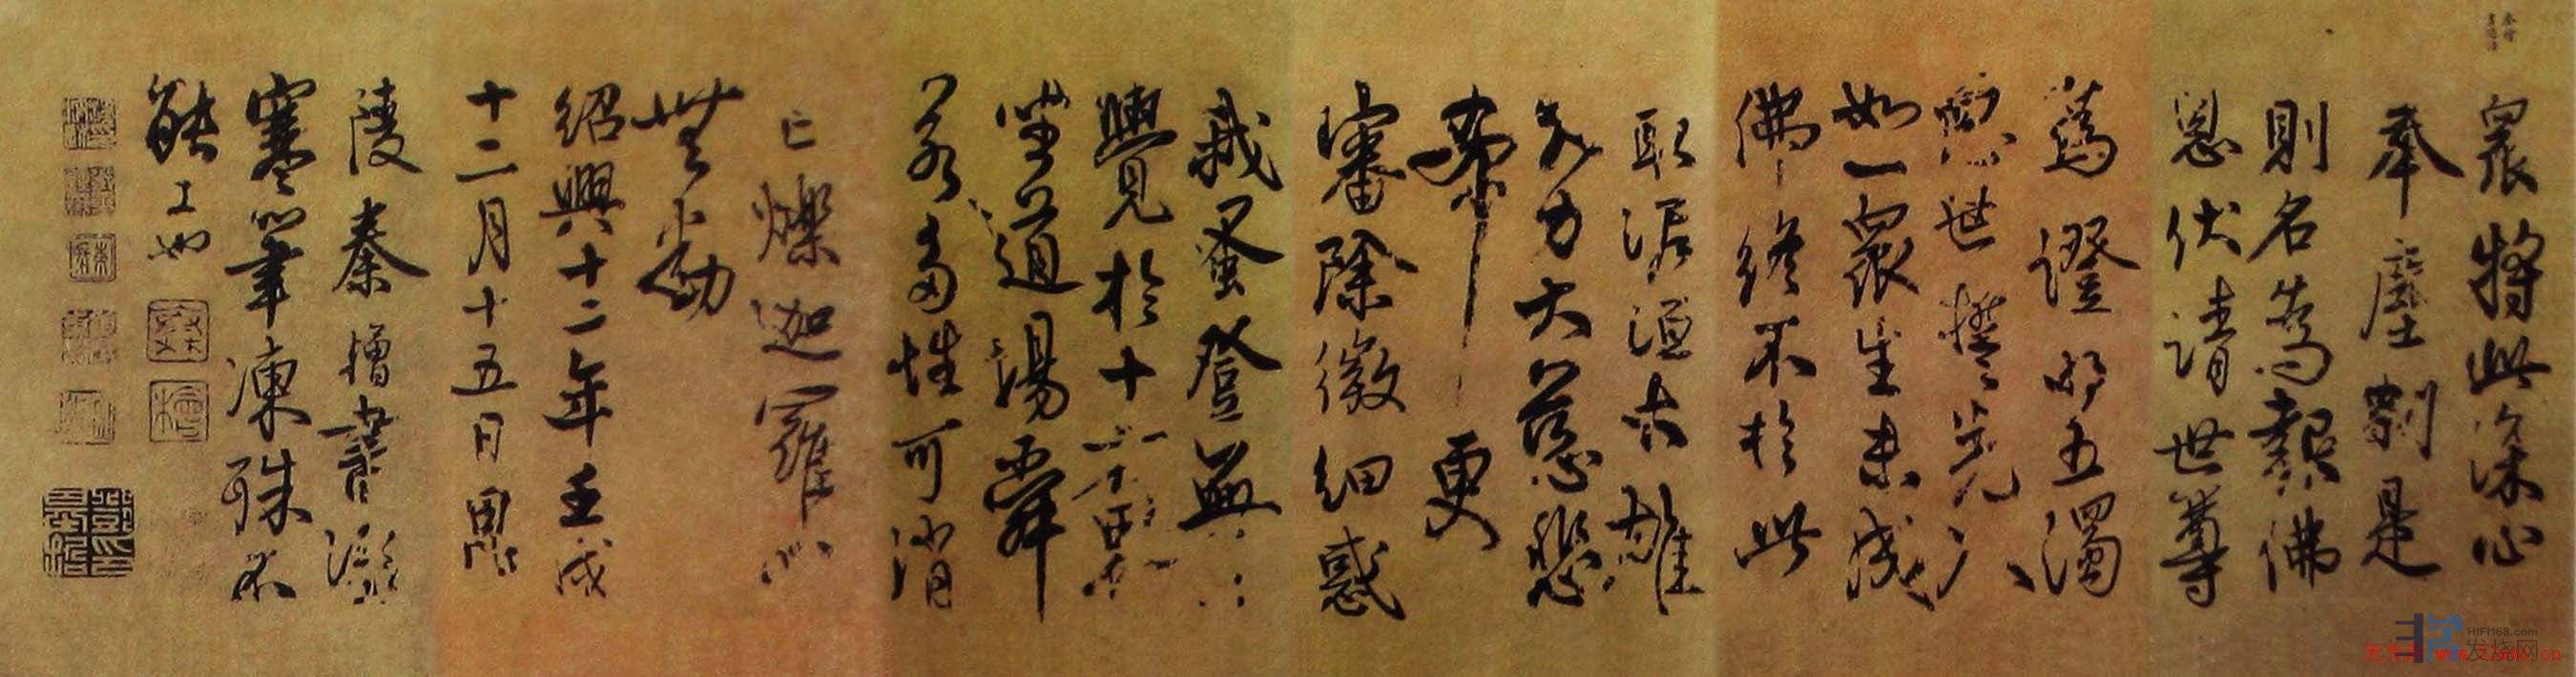 眾將此深心
奉塵剎是
則名為報佛
恩伏請世尊
為證明五濁
惡世誓先入
如一眾生未成
佛終不於此
取泥洹大雄
大力大慈悲
希更
審除微細惑
我蚤登無上
覺於十方界
坐道場舜
若多性可消
亡爍迦羅心
無動
紹興十二年壬戌
十二月十五日
陵秦檜書
寒筆凍殊不
能工也
HIFI168.com
发烧网